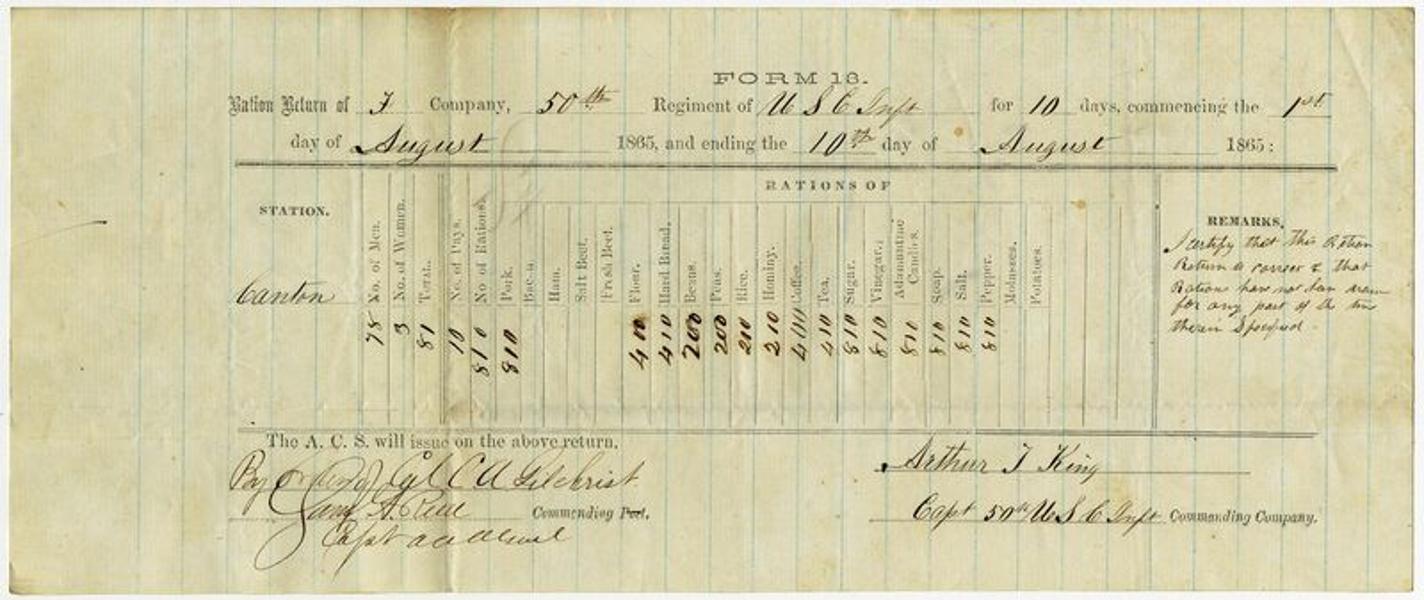 FORM 13.
Ration Return of F Company, 50th Regiment of U S C Inft for 10 days, commencing the 1st
day of August 1865, and ending the 10th day of August 1865:
RATIONS OF
STATION. No. of Men. No. of Women. Total. No. of Days. No of Rations. Pork. Bacon Ham. Salt Beef. Fresh Beef. Flour. Hard Bread. Beans. Peas. Rice. Hominy. Coffee. Tea. Sugar. Vinegar. Adamantine Candles. Soap. Salt. Pepper. Molasses. Potatoes. REMARKS.
Canton 78 3 81 10 810 810 400 410 200 200 210 210 400 410 810 810 810 810 810 810
I certify that this Ration
Return is correct & that
Rations have not been drawn
for any part of the time
therein Specified
The A. C. S. will issue on the above return.
By order of Col C A Gilchrist
Commanding Post.
Capt
Arthur T King
Capt 50th U S C Inft Commanding Company.